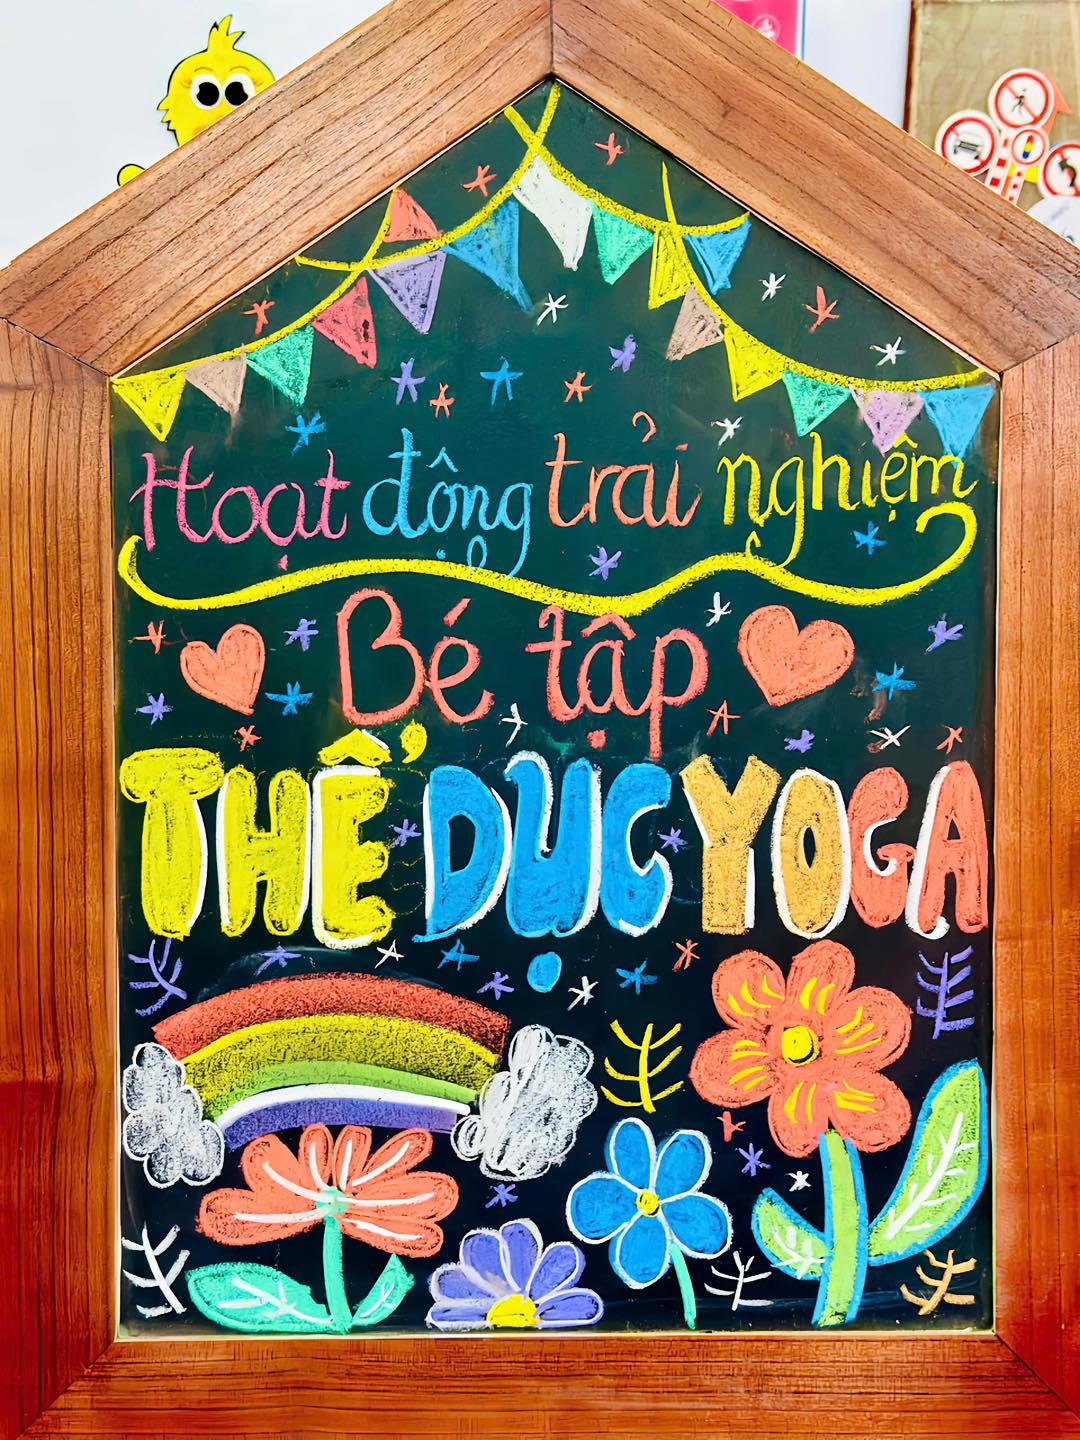 Hoạt động trải nghiệm
Bé tập
THỂ DỤC YOGA